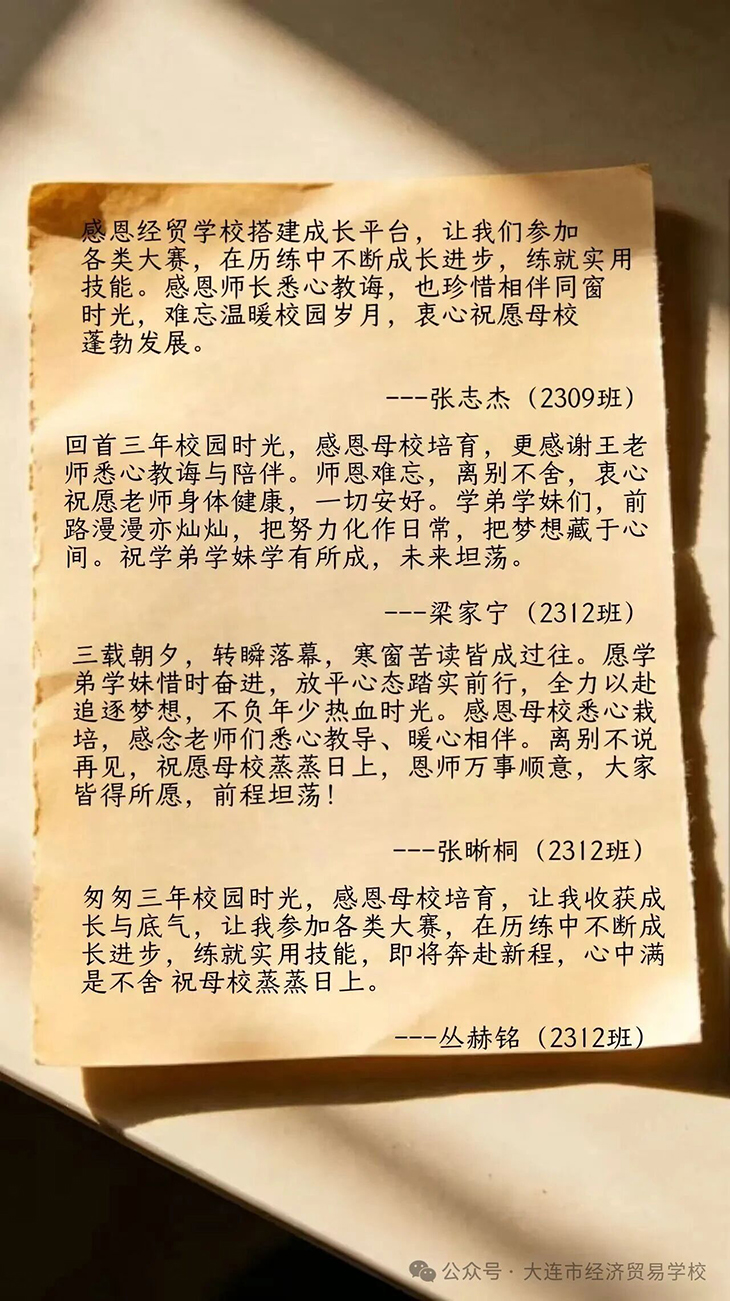 感恩经贸学校搭建成长平台，让我们参加
各类大赛，在历练中不断成长进步，练就实用
技能。感恩师长悉心教诲，也珍惜相伴同窗
时光，难忘温暖校园岁月，衷心祝愿母校
蓬勃发展。
---张志杰（2309班）
回首三年校园时光，感恩母校培育，更感谢王老
师悉心教诲与陪伴。师恩难忘，离别不舍，衷心
祝愿老师身体健康，一切安好。学弟学妹们，前
路漫漫亦灿灿，把努力化作日常，把梦想藏于心
间。祝学弟学妹学有所成，未来坦荡。
---梁家宁（2312班）
三载朝夕，转瞬落幕，寒窗苦读皆成过往。愿学
弟学妹惜时奋进，放平心态踏实前行，全力以赴
追逐梦想，不负年少热血时光。感恩母校悉心栽
培，感念老师们悉心教导、暖心相伴。离别不说
再见，祝愿母校蒸蒸日上，恩师万事顺意，大家
皆得所愿，前程坦荡！
---张晰桐（2312班）
匆匆三年校园时光，感恩母校培育，让我收获成
长与底气，让我参加各类大赛，在历练中不断成
长进步，练就实用技能，即将奔赴新程，心中满
是不舍 祝母校蒸蒸日上。
---丛赫铭（2312班）
公众号·大连市经济贸易学校